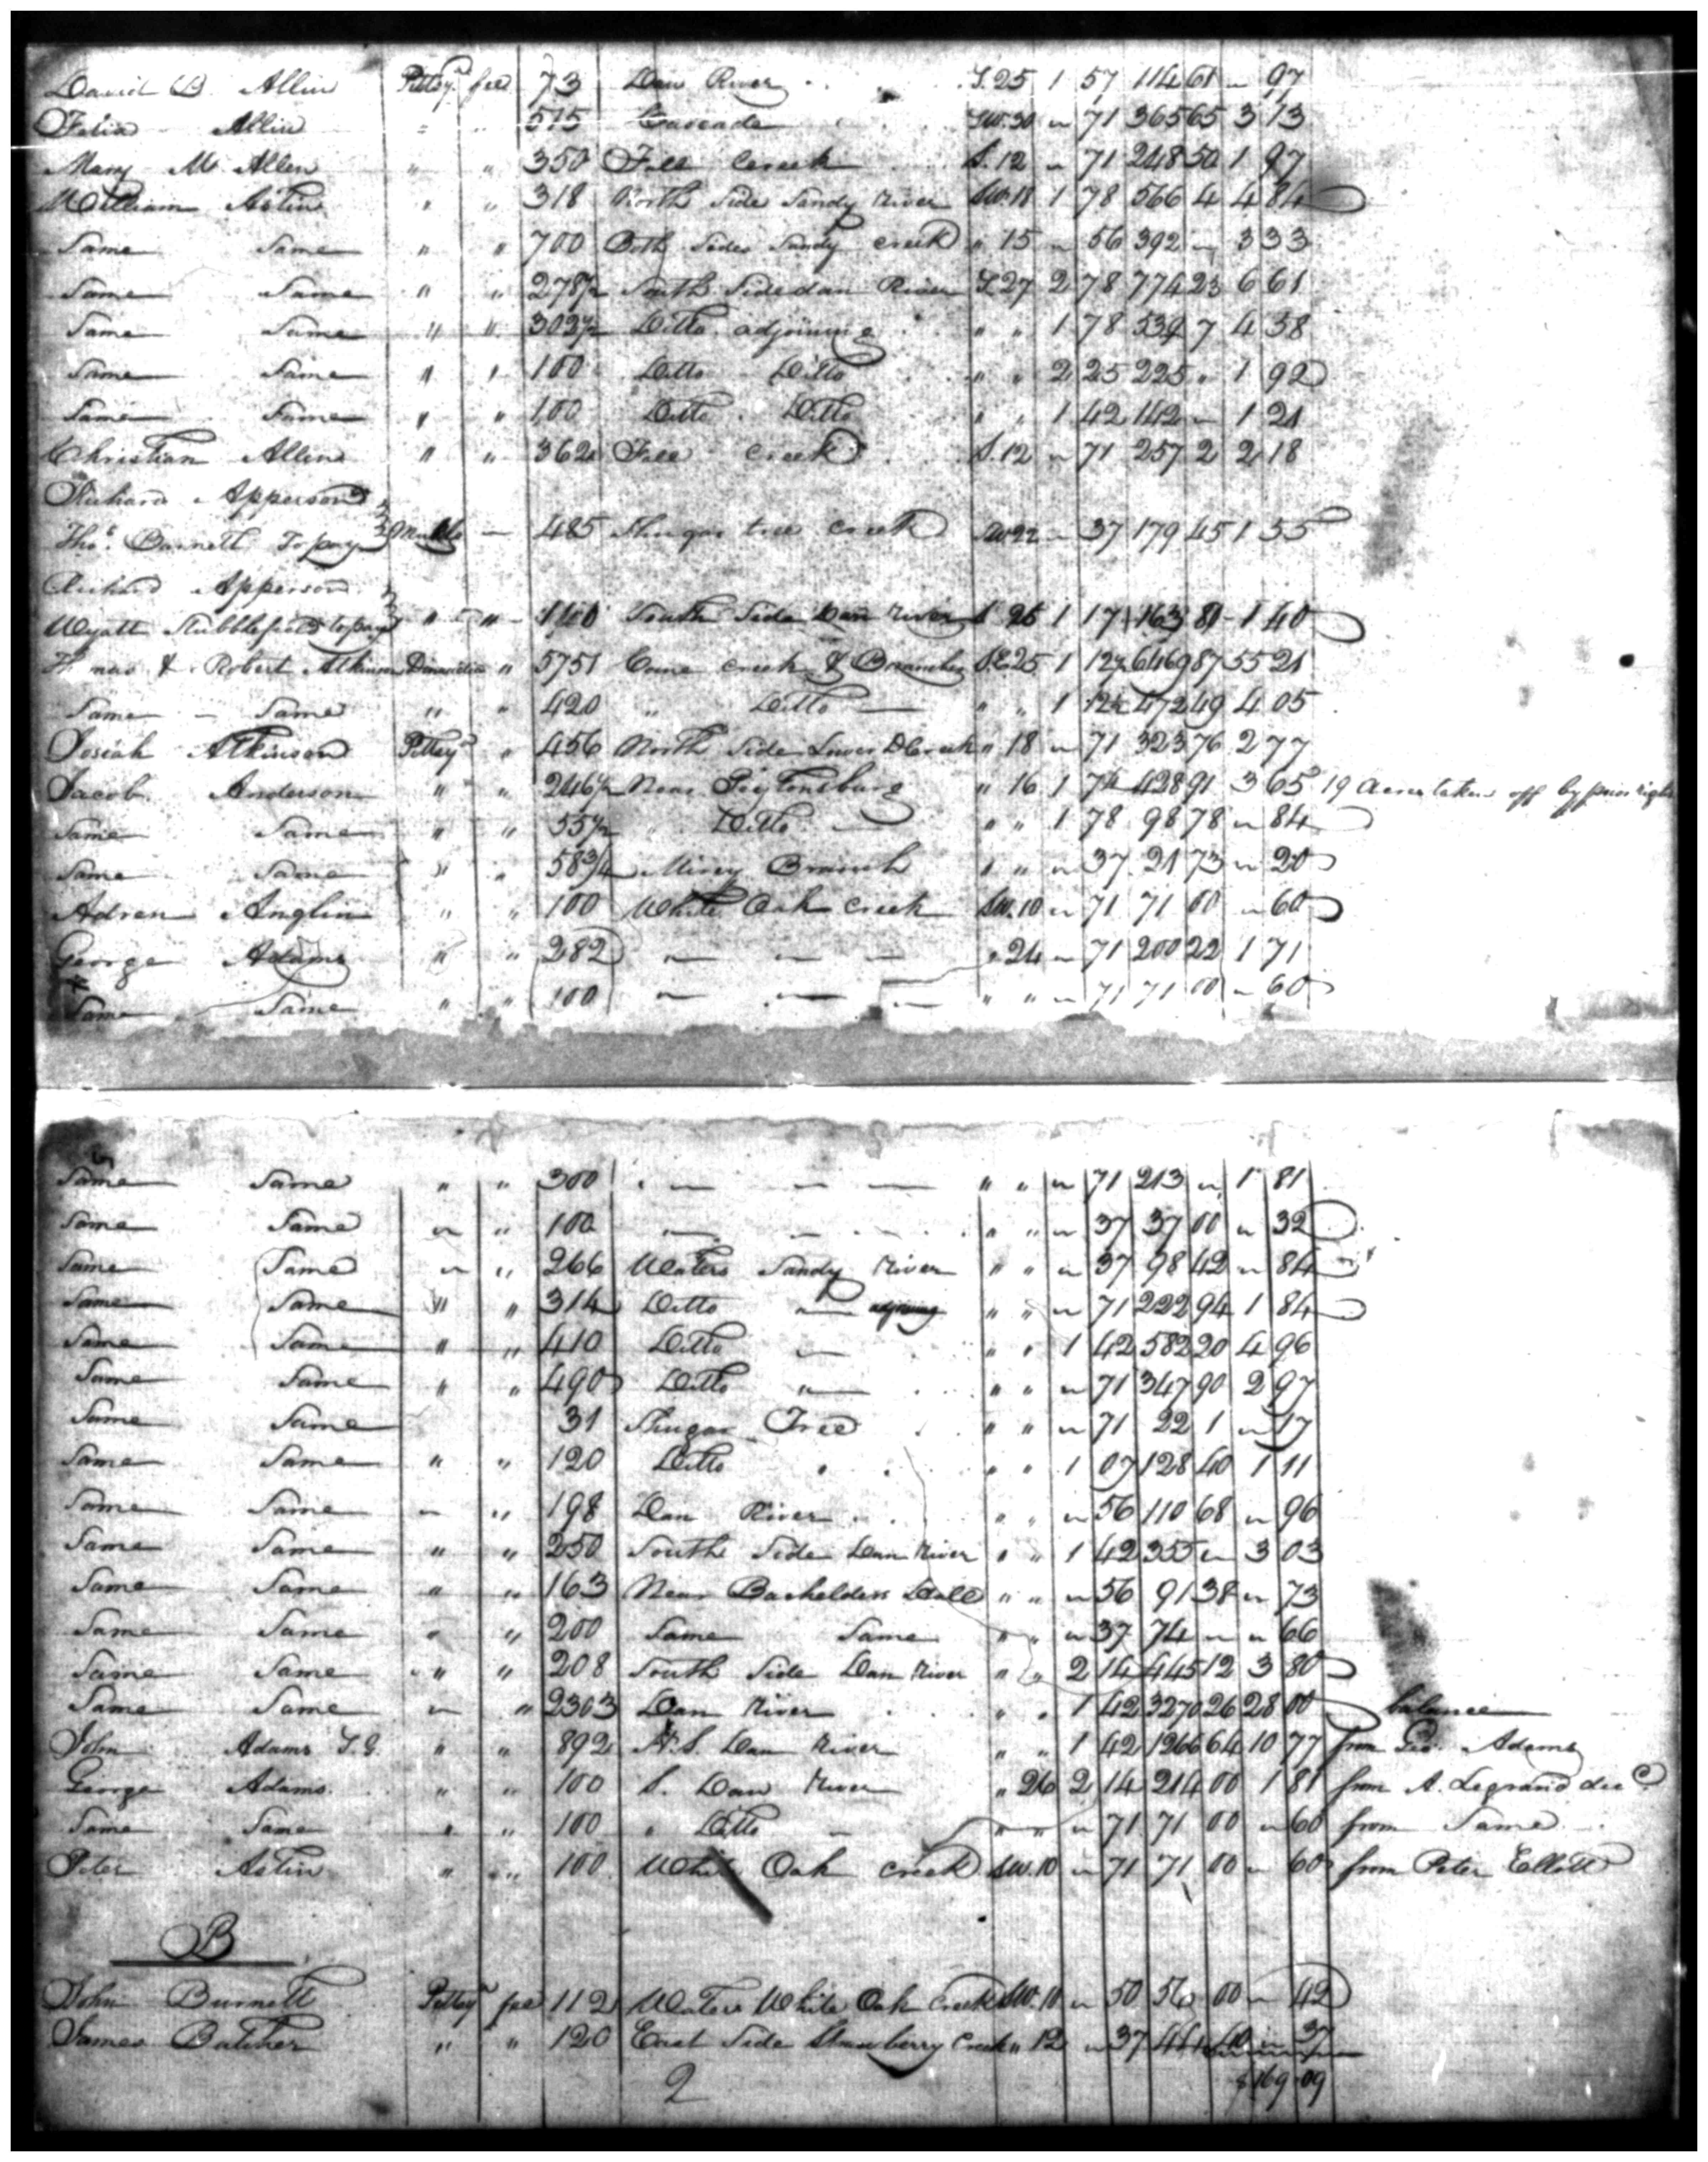 David B. Allin Pittsya fee 73 Dan River S. 25 1 57 114 61 " 97
Allin " " 515 Cascade SW. 30 " 71 365 65 3 13
Mary M Allen " " 350 Fall Creek S. 12 " 71 248 50 1 97
William Astin " " 318 North Side Sandy River SW. 18 1 78 566 4 4 84
Same Same " " 700 Both Sides Sandy Creek " 15 " 56 392 " 3 33
Same Same " " 278½ South Side dan River S. 27 2 78 774 23 6 61
Same Same " " 302½ Ditto adjoining " " 1 78 539 7 4 58
Same Same " " 100 Ditto Ditto " " 2 25 225 " 1 92
Same Same " " 100 Ditto Ditto " " 1 42 142 " 1 21
Christian Allen " " 362 Fall Creek S. 12 " 71 257 2 2 18
Richard Apperson
Thos. Barnett To pay 485 Shugar tree creek SW 22 " 37 179 45 1 55
Richard Apperson
Wyatt Stubblefield to pay " " 140 South Side Dan River S 26 1 17 163 81 1 40
Thomas & Robert Atkinson Dinwiddie " 5751 Cane Creek & Branches S.E 25 1 12½ 6469 87 55 21
Same Same " " 420 " Ditto " " 1 12½ 472 49 4 05
Josiah Atkinson Pittsya " 456 North Side Lower D Creek " 18 " 71 323 76 2 77
Jacob Anderson " " 246½ Near Peytonsburg " 16 1 74 428 91 3 65 19 Acres taken off by prior right
Same Same " " 55½ " Ditto " " 1 78 98 78 " 84
Same Same " " 58¾ Mirey Branch " " " 37 21 73 " 20
Adren Anglin " " 100 White Oak Creek SW. 10 " 71 71 00 " 60
George Adams " " 282 " 24 " 71 200 22 1 71
Same Same " " 100 " " " 71 71 00 " 60
Same Same " " 300 " " " 71 213 " 1 81
Same Same " " 100 " " " 37 37 00 " 32
Same Same " " 266 Waters Sandy River " " " 37 98 42 " 84
Same Same " " 314 Ditto " adjoining " " " 71 222 94 1 84
Same Same " " 410 Ditto " " " 1 42 582 20 4 96
Same Same " " 490 Ditto " " " " 71 347 90 2 97
Same Same 31 Shugar Tree " " " 71 22 1 " 17
Same Same " " 120 Ditto " " 1 07 128 40 1 11
Same Same " " 198 Dan River " " " 56 110 68 " 96
Same Same " " 250 South Side Dan River " " 1 42 355 " 3 03
Same Same " " 163 Near Bachelders Hall " " " 56 91 38 " 73
Same Same " " 200 Same Same " " " 37 74 " " 66
Same Same " " 208 South Side Dan River " " 2 14 445 12 3 80
Same Same " " 2303 Dan River " " 1 42 3270 26 28 00 balance
John Adams T.G. " " 892 N.S. Dan River " " 1 42 1266 64 10 77 from Geo. Adams
George Adams " " 100 S. Dan River " 26 2 14 214 00 1 81 from A. Legrand decd
Same Same " " 100 " Ditto " " " " 71 71 00 " 60 from Same
Peter Astin " " 100 White Oak Creek SW. 10 " 71 71 00 " 60 from Peter Ellott
B
John Burnett Pittsya fee 112 Waters White Oak Creek SW. 10 " 50 56 00 " 42
James Butcher " " 120 East Side Strawberry Creek " 12 " 37 44 40 " 37
2 $169 09